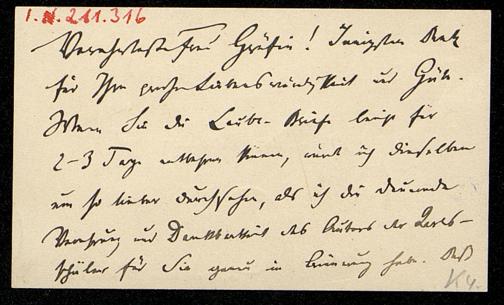 I.N. 211.316
Verehrteste Frau Gräfin! Innigsten Dank
für Ihre große Liebenswürdigkeit und Güte.
Wenn Sie die Laube-Briefe leicht für
2-3 Tage entbehren können, würde ich dieselben
um so lieber durchsehen, als ich die dauernde
Verehrung und Dankbarkeit des Autors der Karls-
schüler für Sie genau in Erinnerung habe. Daß